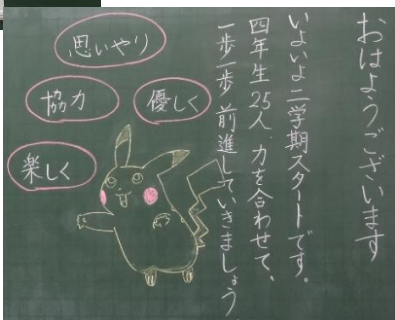 おはようございます
いよいよ二学期スタートです。
四年生25人、力を合わせて、
一歩一歩前進していきましょう
思いやり
協力
優しく
楽しく